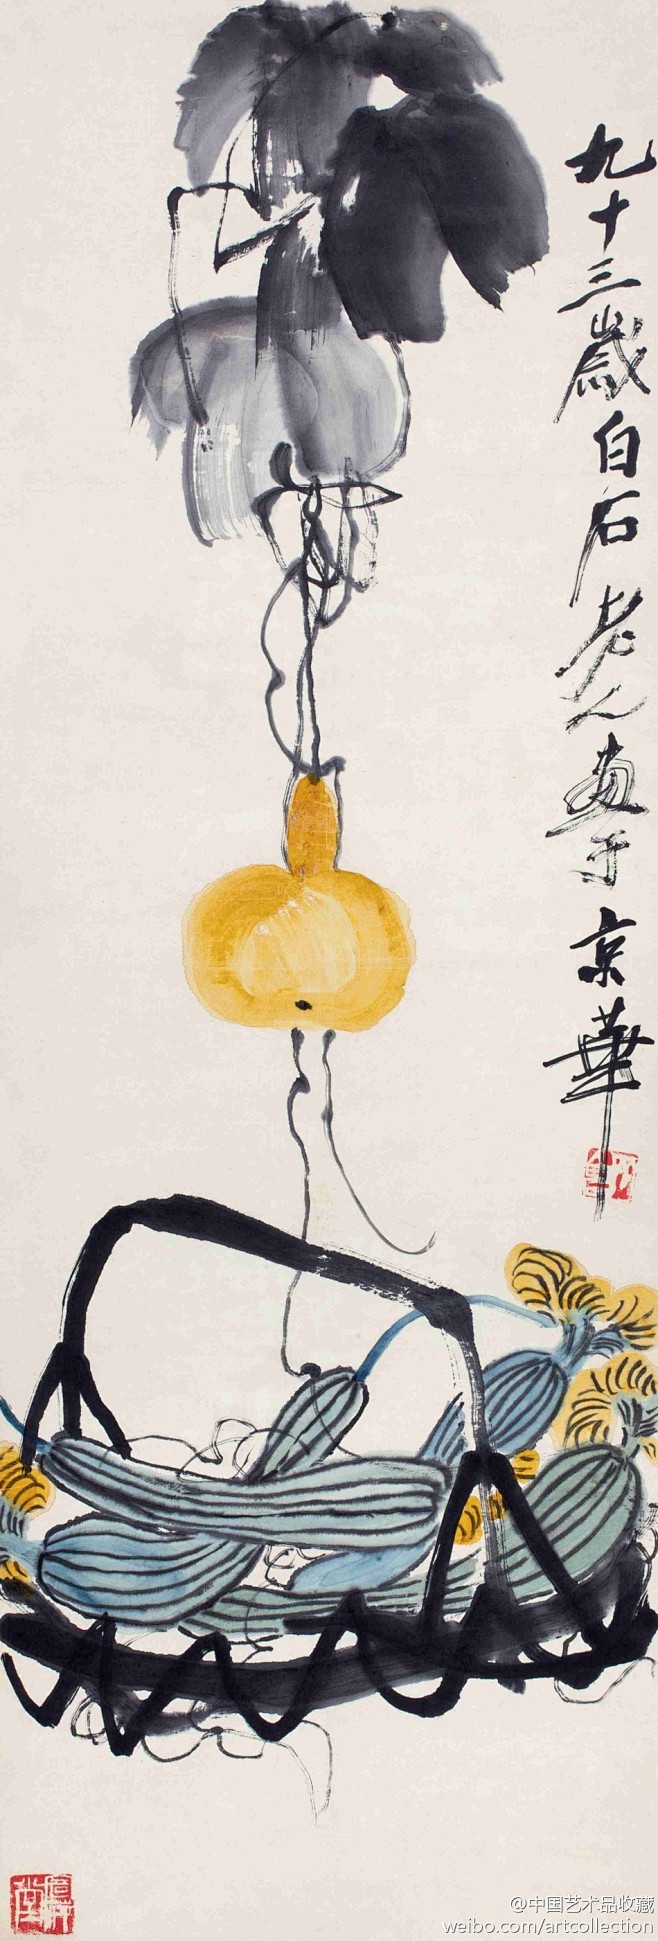 九十三歲白石老人画于京華
@中国艺术品收藏
weibo.com/artcollection